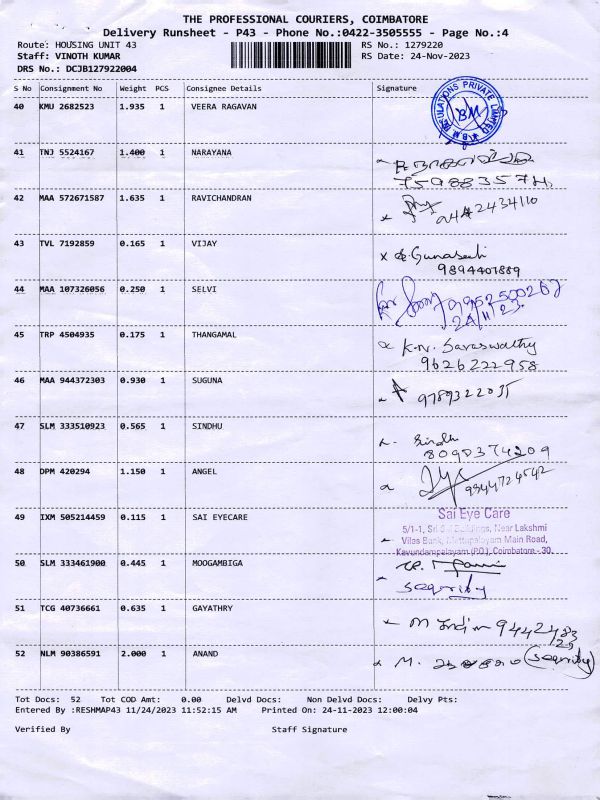 THE PROFESSIONAL COURIERS, COIMBATORE
Delivery Runsheet - P43 - Phone No.:0422-3505555 - Page No.:4
Route: HOUSING UNIT 43 RS No.: 1279220
Staff: VINOTH KUMAR RS Date: 24-Nov-2023
DRS No.: DCJB127922004
S No Consignment No Weight PCS Consignee Details Signature
40 KMU 2682523 1.935 1 VEERA RAGAVAN
BM
41 TNJ 5524167 1.400 1 NARAYANA
42 MAA 572671587 1.635 1 RAVICHANDRAN
43 TVL 7192859 0.165 1 VIJAY
9894401889
44 MAA 107326056 0.250 1 SELVI
24/11/23
45 TRP 4504935 0.175 1 THANGAMAL
K.N. Saraswathy
9626222958
46 MAA 944372303 0.930 1 SUGUNA
9789322035
47 SLM 333510923 0.565 1 SINDHU
Sindhu
8090374209
48 DPM 420294 1.150 1 ANGEL
9944724542
49 IXM 505214459 0.115 1 SAI EYECARE
Sai Eye Care
5/1-1, Buildings, Near Lakshmi
Vilas Bank, Mettupalayam Main Road,
Kavundampalayam (P.O.), Coimbatore - 30.
50 SLM 333461900 0.445 1 MOOGAMBIGA
51 TCG 40736661 0.635 1 GAYATHRY
52 NLM 90386591 2.000 1 ANAND
Tot Docs: 52 Tot COD Amt: 0.00 Delvd Docs: Non Delvd Docs: Delvy Pts:
Entered By :RESHMAP43 11/24/2023 11:52:15 AM Printed On: 24-11-2023 12:00:04
Verified By Staff Signature